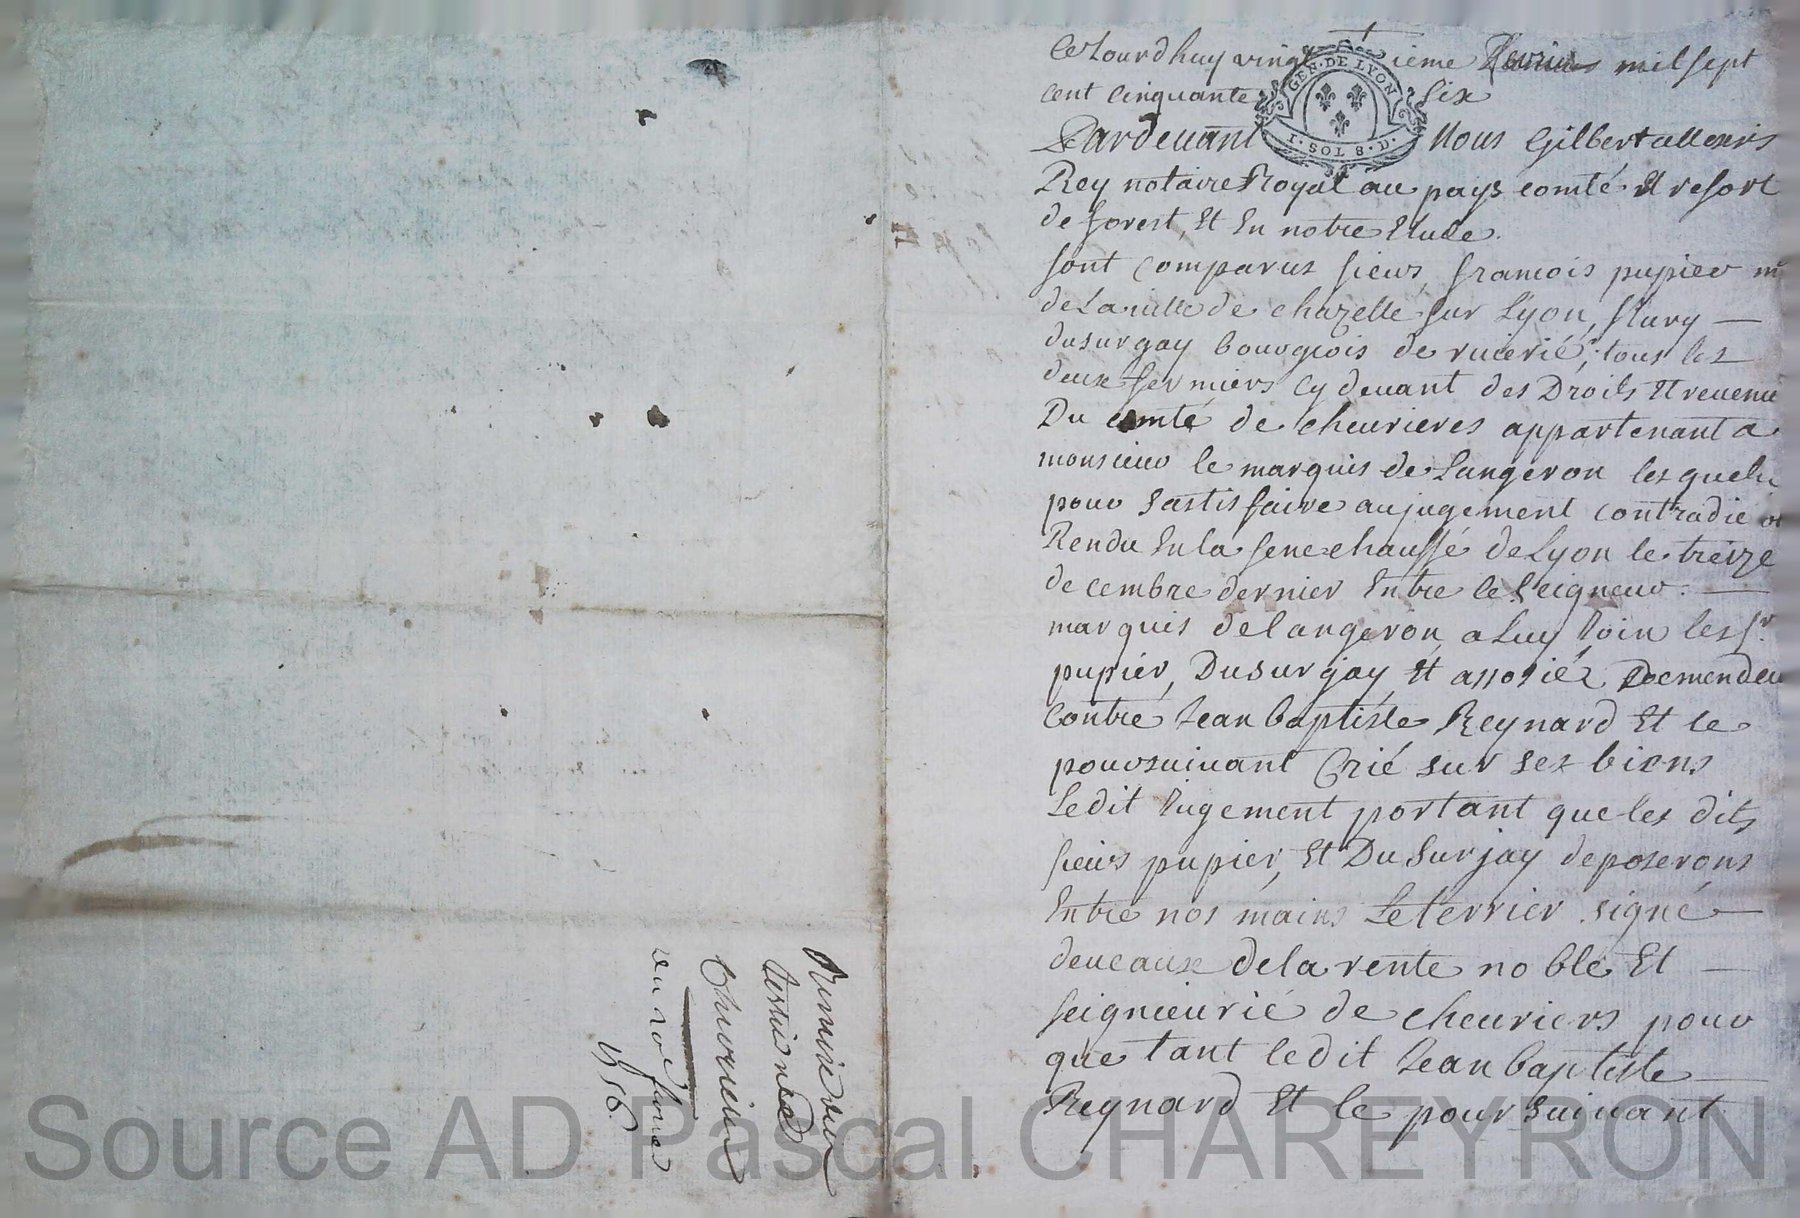 Ce Jourdhuy vingt ieme mil sept
cent cinquante six
GEN. DE LYON
I. SOL 8. D.
Pardevant Nous Gilbert allexis
Rey notaire Royal au pays comté Et resort
de forest, Et En notre Etude.
sont comparus sieurs francois pupier m
de La ville de chazelle sur Lyon, flury —
dusurgay bourgeois de riverié, tous les
deux fermiers Cy devant des Droits Et revenu
Du comté de chevrieres appartenant a
monsieur le marquis de Langeron les quels
pour sastisfaire au jugement contradic
Rendu En la senechaussé de Lyon le treize
decembre dernier Entre le Seigneur. —
marquis de langeron, a Luy Join les Sr
pupier, Dusurgay, Et associéz Demendeu
Contre Jean baptiste Reynard Et le
poursuivant Crié sur ses biens
Ledit Jugement portant que les dits
sieurs pupier, Et Du Surjay deposerons
Entre nos mains Le terrier signé —
deveaux de la rente noble Et —
seigneurié de chevriers pour
que tant ledit Jean baptiste —
Reynard Et le poursuivant
1756.
Source AD Pascal CHAREYRON